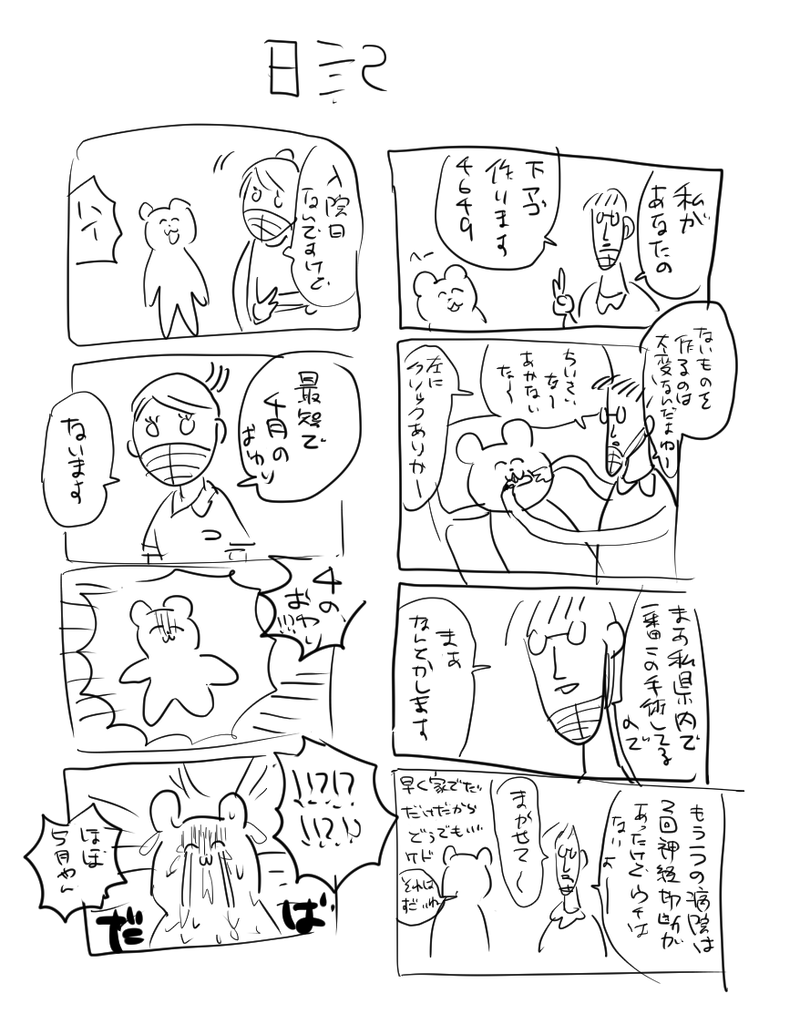 日記
私が
あなたの
下アゴ
作ります
4649
ないものを
作るのは
大変なんだよねー
ちいさい
なー
あかない
たー
左に
クリックありかー
まあ私県内で
一番この手術してる
ので
まあ
なんとかします
もう一つの病院は
2回神経切断が
あったけどウチは
ないよー
まかせてー
早く家でだ
だけだから
どうでもいい
ケド
それは
だいね
入院日
ないですけど
ハイ
最短で
4月の
おわり
ないます
4の
おわり
!!?
!?!?
!!?!?
ほぼ
5月やん
だ
ば